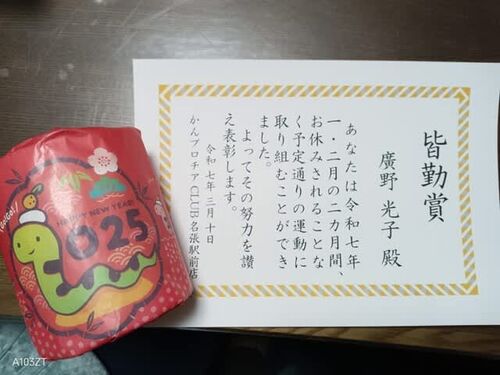 皆勤賞
廣野 光子 殿
あなたは令和七年
一・二月の二カ月間、
お休みされることな
く予定通りの運動に
取り組むことができ
ました。
よってその努力を讃
え表彰します。
令和七年三月十日
かんプロチアCLUB名張駅前店
HAPPY NEW YEAR!
025
A103ZT